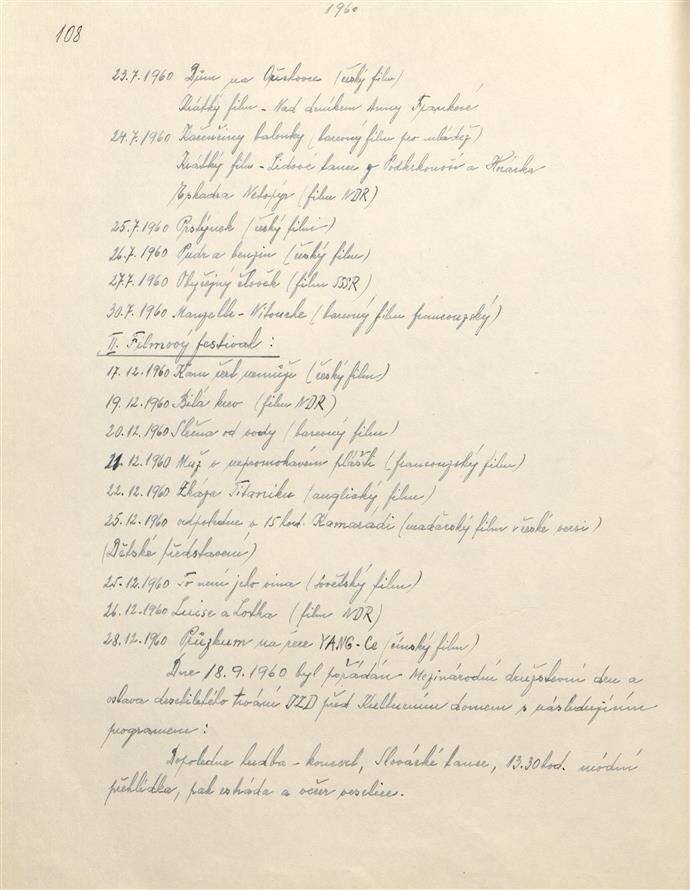 1960
108
23.7.1960 Dům na Ořechovce (český film)
Krátký film - Nad deníkem Anny Frankové
24.7.1960 Kařenčiny balonky (barevný film pro mládež)
Krátký film - Lidové tance z Podkrkonoší a Horácka
Eskadra Netopýr (film NDR)
25.7.1960 Prstýnek (český film)
26.7.1960 Pudr a benzin (český film)
27.7.1960 Obyčejný člověk (film SSSR)
30.7.1960 Manzelle - Nitouche (barevný film francouzský)
II. Filmový festival:
17.12.1960 Kam čert nemůže (český film)
19.12.1960 Bílá krev (film NDR)
20.12.1960 Slečna od vody (barevný film)
21.12.1960 Muž v nepromokavém plášti (francouzský film)
22.12.1960 Zkáza Titaniku (anglický film)
25.12.1960 odpoledne v 15 hod. Kamaradi (maďarský film v české versi)
(Dětské představení)
25.12.1960 To není jeho vina (Sovětský film)
26.12.1960 Luise a Lotka (film NDR)
28.12.1960 Průzkum na řece YANG-Ce (čínský film)
Dne 18.9.1960 byl pořádán Mezinárodní družstevní den a
oslava desetiletého trvání JZD před Kulturním domem s následujícím
programem:
Dopoledne hudba - koncert, Slovácké tance, 13.30 hod. módní
přehlídka, pak estráda a večer veselice.